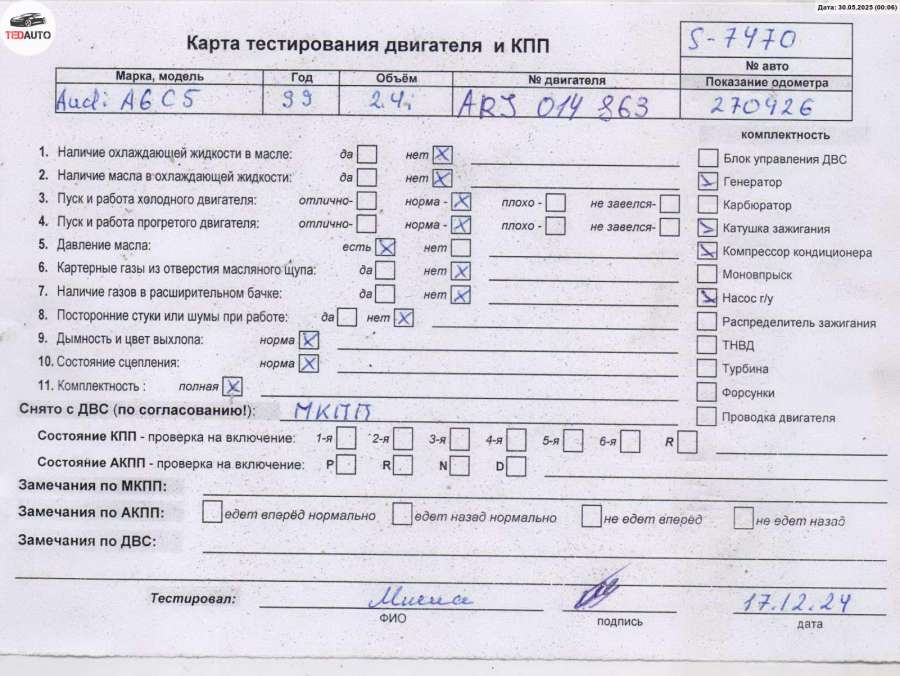 Дата: 30.05.2025 (00:06)
TEDAUTO
Карта тестирования двигателя и КПП
S-7470
№ авто
Марка, модель Год Объём № двигателя Показание одометра
Audi A6 C5 99 2.4i ARJ 014 863 270426
комплектность
1. Наличие охлаждающей жидкости в масле: да нет
Блок управления ДВС
2. Наличие масла в охлаждающей жидкости: да нет
Генератор
3. Пуск и работа холодного двигателя: отлично- норма - плохо - не завелся-
Карбюратор
4. Пуск и работа прогретого двигателя: отлично- норма - плохо - не завелся-
Катушка зажигания
5. Давление масла: есть нет
Компрессор кондиционера
6. Картерные газы из отверстия масляного щупа: да нет
Моновпрыск
7. Наличие газов в расширительном бачке: да нет
Насос г/у
8. Посторонние стуки или шумы при работе: да нет
Распределитель зажигания
9. Дымность и цвет выхлопа: норма
ТНВД
10. Состояние сцепления: норма
Турбина
11. Комплектность : полная
Форсунки
Снято с ДВС (по согласованию!): МКПП
Проводка двигателя
Состояние КПП - проверка на включение: 1-я 2-я 3-я 4-я 5-я 6-я R
Состояние АКПП - проверка на включение: P R N D
Замечания по МКПП:
Замечания по АКПП: едет вперёд нормально едет назад нормально не едет вперёд не едет назад
Замечания по ДВС:
Тестировал: Миша 17.12.24
ФИО подпись дата